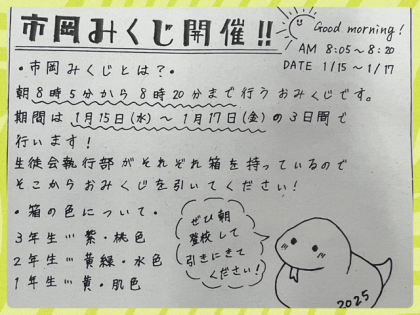 市岡みくじ開催!!
Good morning!
AM 8:05~8:20
DATE 1/15~1/17
・市岡みくじとは?・
朝8時5分から8時20分まで行うおみくじです。
期間は1月15日(水)~1月17日(金)の3日間で
行います!
生徒会執行部がそれぞれ箱を持っているので
そこからおみくじを引いてください!
・箱の色について・
3年生…紫・桃色
2年生…黄緑・水色
1年生…黄・肌色
ぜひ朝
登校して
引きにきて
ください!
2025